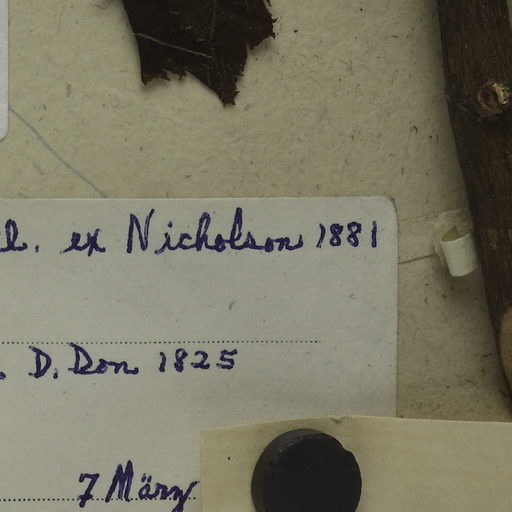 l. ex Nicholson 1881
. D. Don 1825
7 März